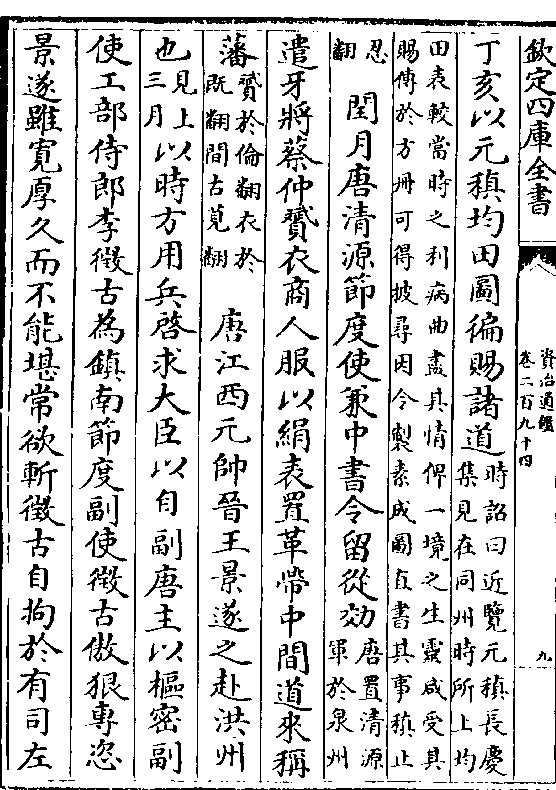 欽定四庫全書
資治通鑑
卷二百九十四
九
丁亥以元稹均田圖徧賜諸道時詔曰近覽元稹長慶
集見在同州時所上均
田表較當時之利病曲盡其情俾一境之生靈咸受其
賜傳於方冊可得披尋因令製素成圖直書其事稹止
忍
翻
閏月唐清源節度使兼中書令留從効唐置清源
軍於泉州
遣牙將蔡仲贇衣商人服以絹表置革帶中間道來稱
藩贇於倫翻衣於
既翻間古莧翻
唐江西元帥晉王景遂之赴洪州
也見上
三月
以時方用兵啓求大臣以自副唐主以樞密副
使工部侍郎李徵古為鎮南節度副使徵古傲狠專恣
景遂雖寛厚久而不能堪常欲斬徵古自拘於有司左